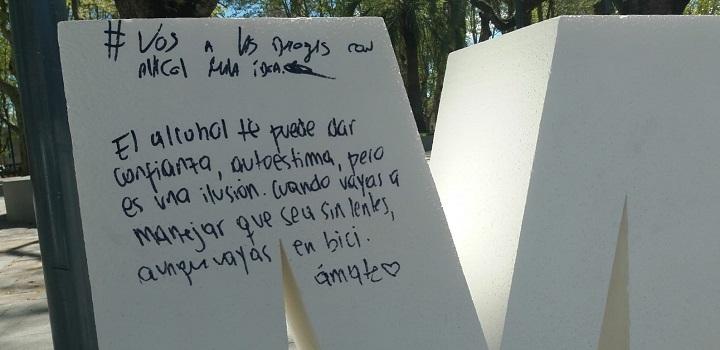 # Vos a las drogas con
alacol mala idea.
El alcohol te puede dar
confianza, autoestima, pero
es una ilusión. Cuando vayas a
manejar que sea sin lentes,
aunque vayas en bici.
ámate♡